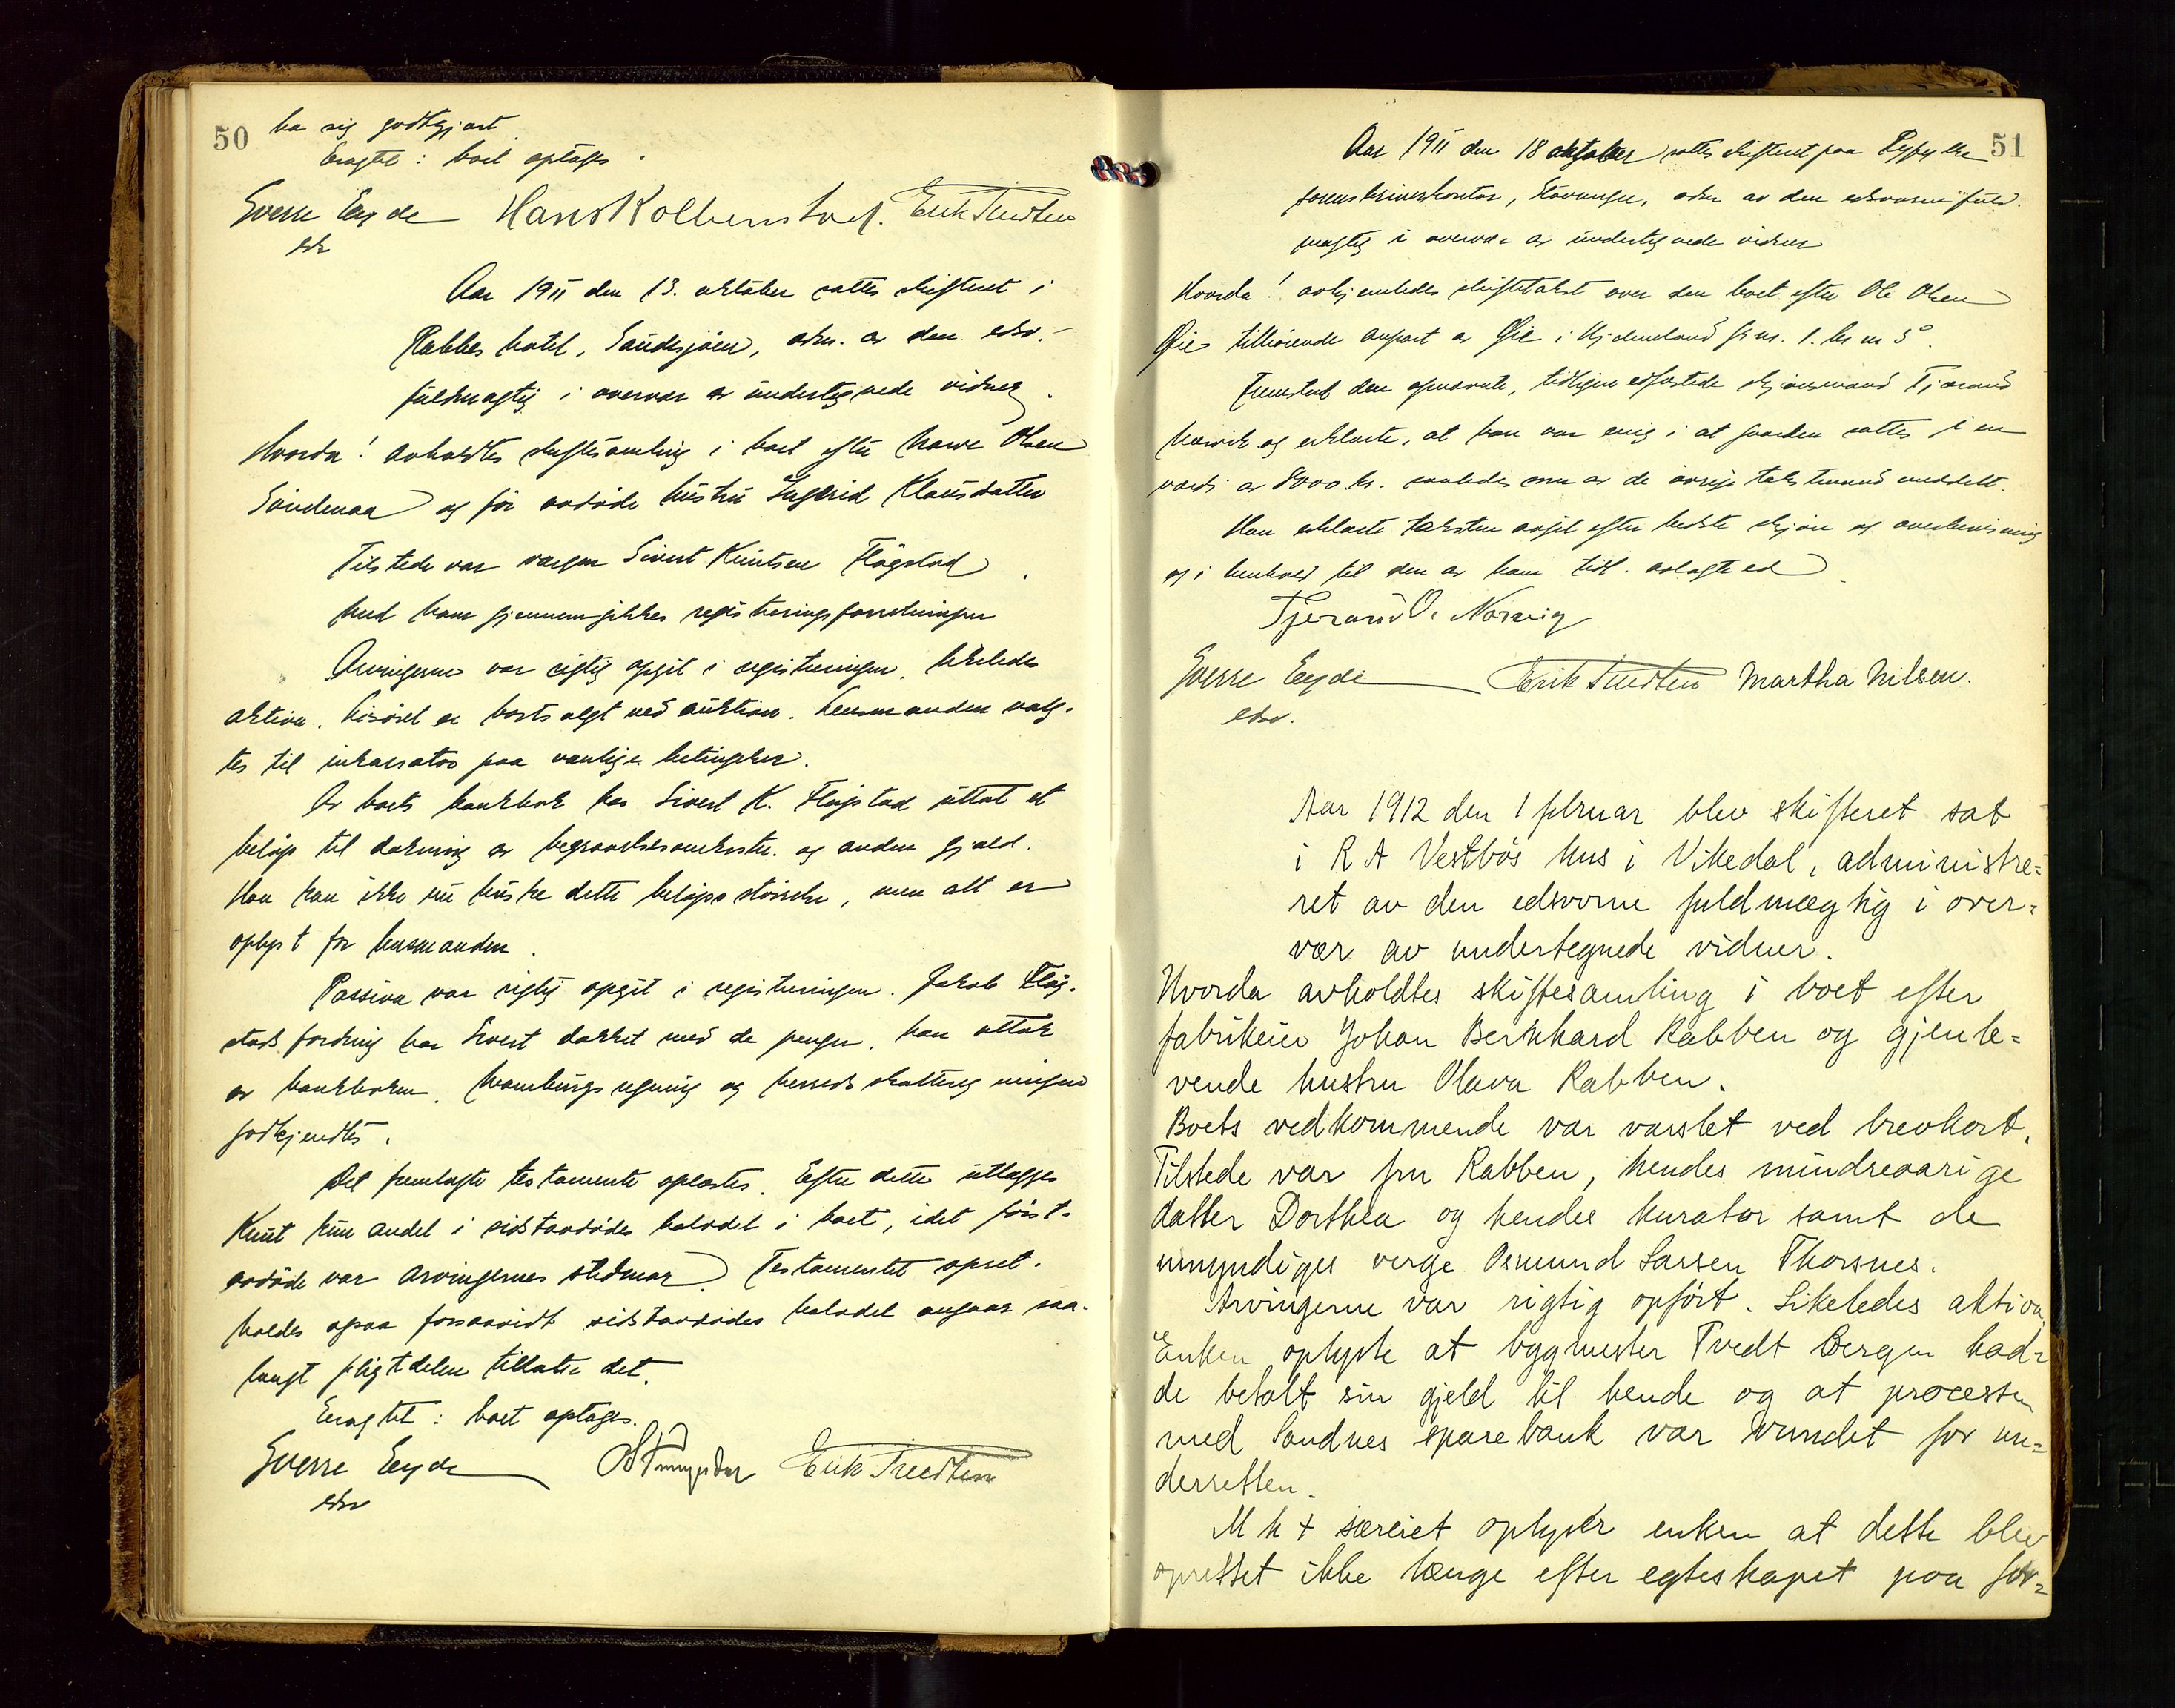 50
ha sig godtgjort.
Eragtet: boet optages.
Sverre Eeg de Hans Kolbenstvet. Erik Tvedten
edsv
Aar 1911 den 13. oktober sattes skifteret i
Rabbes hotel, Saudesjøen, adm. av den edsv.
fuldmægtig i overvær av undertegnede vidner.
Hvorda! avholdtes skiftesamling i boet efter Olsen
Søndenaa og før avdøde hustru Ingerid Klausdatter
Tilstede var vergen Sivert Knutsen Fløgstad.
Med ham gjennemgikkes registreringsforretningen
Arvingerne var rigtig opgit i registreringen, likeledes
aktiva. Løsøret er bortsolgt ved auktion. Lensmanden valg-
tes til inkassator paa vanlige betingelser.
Av boets bankbok har Sivert K. Fløgstad uttat et
beløp til dækning av begravelsesomkostn. og anden gjæld.
Han kan ikke nu huske dette beløps størrelse, men alt er
oplyst for lensmanden.
Passiva var rigtig opgit i registreringen. Jakob Fløg-
stads fordring har Sivert dækket med de penger, han uttok
av bankboken. regning og herredsskatteregningen
godkjendtes.
Det fremlagte testamente oplæstes. Efter dette utlægges
Knut kun andel i sidstavdødes halvdel i boet, idet først-
avdøde var arvingernes stedmor. Testamentet opret-
holdes ogsaa forsaavidt sidstavdødes halvdel angaar saa-
langt pligtdelen tillater det.
Eragtet: boet optages.
Sverre Eeg de Erik Tvedten
edsv
51
Aar 1911 den 18 oktober sattes skifteret paa Ryfylke
sorenskriverkontor, Stavanger, adm av den edsvorne fuld-
mægtig i overvær av undertegnede vidner
Hvorda! avhjemledes skiftetakst over den boet efter Ole Olsen
Øie tilhørende anpart av Øie i Hjelmeland gr nr. 1. br nr 5.
Fremstod den opnævnte, tidligere edfæstede skjønsmand Tjerand
Nærvik og erklærte, at han var enig i at gaarden sattes i en
værdi av 8000 kr. saaledes som av de øvrige takstmænd meddelt.
Han erklærte taksten avgit efter bedste skjøn og overbevisning
og i henhold til den av ham tidl. avlagte ed.
Tjerand O. Nærvig
Sverre Eeg de Erik Tvedten Martha Nilsen.
edsv.
Aar 1912 den 1 februar blev skifteret sat
i R A Vestbøs hus i Vikedal, administre=
ret av den edsvorne fuldmægtig i over=
vær av undertegnede vidner.
Hvorda avholdtes skiftesamling i boet efter
fabrikeier Johan Bernhard Rabben og gjenle=
vende hustru Olava Rabben.
Boets vedkommende var varslet ved brevkort.
Tilstede var fru Rabben, hendes mindreaarige
datter Dorthea og hendes kurator samt de
umyndiges verge Osmund Larsen Thorsnes.
Arvingerne var rigtig opført. Likeledes aktiva.
Enken oplyste at bygmester Tvedt Bergen had=
de betalt sin gjeld til hende og at processen
med Sandnes sparebank var vundet for un=
derretten.
M h t særeiet oplyser enken at dette blev
oprettet ikke længe efter egteskapet paa for=